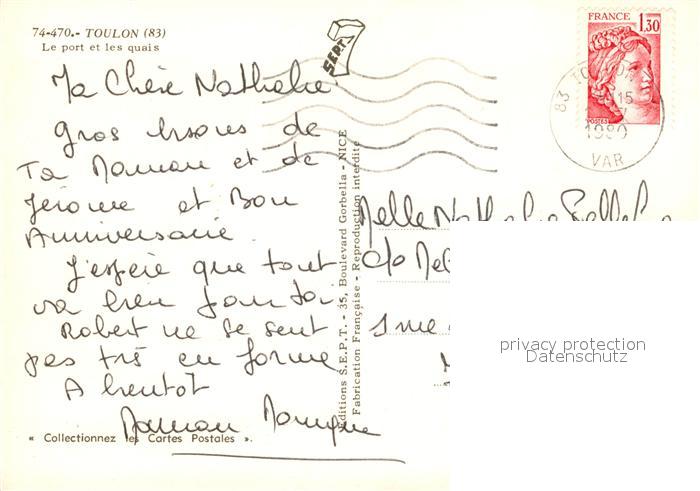 74-470.- TOULON (83)
Le port et les quais
S.E.P.T.
7
FRANCE
1,30
POSTES
83 TOULON
15
1980
VAR
Ma Chère Nathalie
Gros bisous de
Ta Maman et de
Jérôme et Bon
Anniversaire.
J'espère que tout
va bien pour toi
Robert ne se sent
pas très en forme
A bientôt
Maman Monique
« Collectionnez les Cartes Postales ».
Editions S.E.P.T. - 35, Boulevard Gorbella - NICE
Fabrication Française - Reproduction interdite
Melle Nathalie
c/o Mel
1 rue
privacy protection
Datenschutz